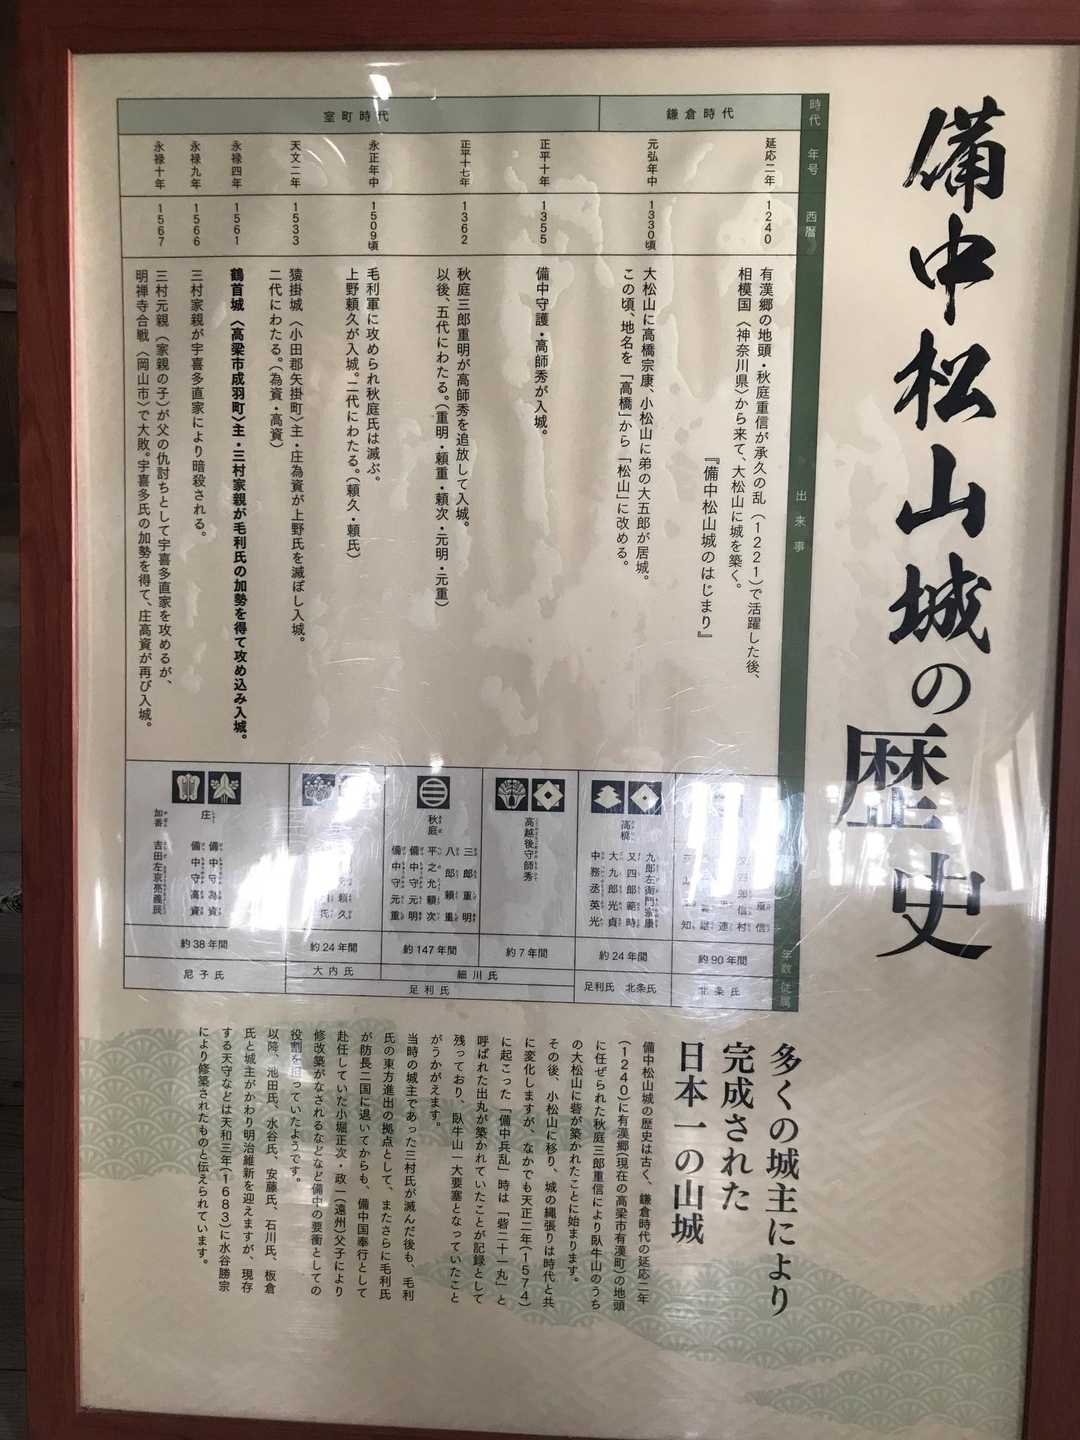 備中松山城の歴史
時代
年号
西暦
出来事
年数
従属
鎌倉時代
室町時代
延応二年
1240
有漢郷の地頭・秋庭重信が承久の乱（1221）で活躍した後、
相模国〈神奈川県〉から来て、大松山に城を築く。
『備中松山城のはじまり』
元弘年中
1330頃
大松山に高橋宗康、小松山に弟の大五郎が居城。
この頃、地名を「高橋」から「松山」に改める。
正平十年
1355
備中守護・高師秀が入城。
正平十七年
1362
秋庭三郎重明が高師秀を追放して入城。
以後、五代にわたる。（重明・頼重・頼次・元明・元重）
永正年中
1509頃
毛利軍に攻められ秋庭氏は滅ぶ。
上野頼久が入城。二代にわたる。（頼久・頼氏）
天文二年
1533
猿掛城〈小田郡矢掛町〉主・庄為資が上野氏を滅ぼし入城。
二代にわたる。（為資・高資）
永禄四年
1561
鶴首城〈高梁市成羽町〉主・三村家親が毛利氏の加勢を得て攻め込み入城。
永禄九年
1566
三村家親が宇喜多直家により暗殺される。
永禄十年
1567
三村元親（家親の子）が父の仇討ちとして宇喜多直家を攻めるが、
明禅寺合戦〈岡山市〉で大敗。宇喜多氏の加勢を得て、庄高資が再び入城。
約90年間
北条氏
高橋
九郎左衛門宗康
又四郎範時
大九郎光貞
中務丞英光
約24年間
足利氏 北条氏
高越後守師秀
約7年間
秋庭
三郎重明
八郎頼重
平之允頼次
備中守元明
備中守元重
約147年間
細川氏
足利氏
頼久
約24年間
大内氏
庄
備中守為資
備中守高資
加番
吉田左京亮義辰
約38年間
尼子氏
多くの城主により
完成された
日本一の山城
備中松山城の歴史は古く、鎌倉時代の延応二年
（1240）に有漢郷（現在の高梁市有漢町）の地頭
に任ぜられた秋庭三郎重信により臥牛山のうち
の大松山に砦が築かれたことに始まります。
その後、小松山に移り、城の縄張りは時代と共
に変化しますが、なかでも天正二年（1574）
に起こった「備中兵乱」時は「砦二十一丸」と
呼ばれた出丸が築かれていたことが記録として
残っており、臥牛山一大要塞となっていたこと
がうかがえます。
当時の城主であった三村氏が滅んだ後も、毛利
氏の東方進出の拠点として、またさらに毛利氏
が防長二国に退いてからも、備中国奉行として
赴任していた小堀正次・政一（遠州）父子により
修改築がなされるなどなど備中の要衝としての
役割を担っていたようです。
以降、池田氏、水谷氏、安藤氏、石川氏、板倉
氏と城主がかわり明治維新を迎えますが、現存
する天守などは天和三年（1683）に水谷勝宗
により修築されたものと伝えられています。